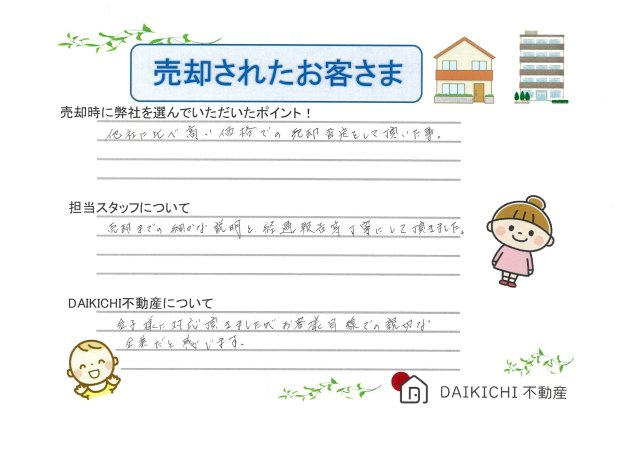 売却されたお客さま
売却時に弊社を選んでいただいたポイント！
他社に比べ高い価格での売却査定をして頂いた事。
担当スタッフについて
売却までの細かな説明と、経過報告等丁寧にして頂きました。
DAIKICHI不動産について
金子様に対応頂きましたがお客様目線での親切な
企業だと感じます。
DAIKICHI 不動産